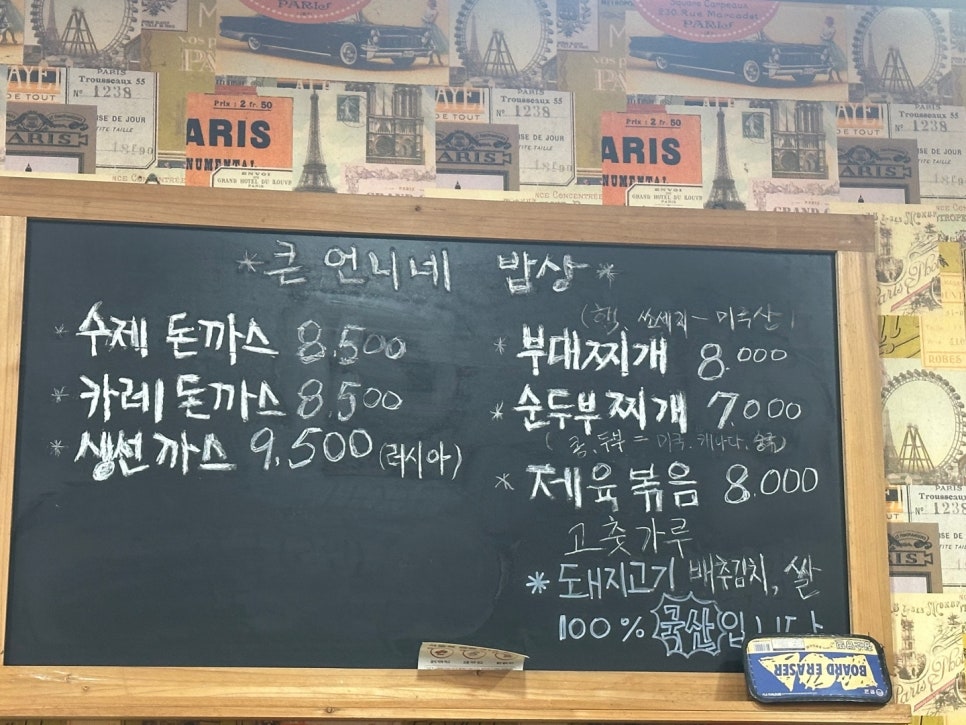 *큰언니네 밥상*
* 수제 돈까스 8.500
* 카레 돈까스 8.500
* 생선까스 9,500 (러시아)
(햄, 쏘세지 - 미국산)
* 부대찌개 8.000
* 순두부찌개 7.000
(콩, 두부 = 미국, 캐나다,
* 제육볶음 8.000
고춧가루
* 돼지고기 배추김치, 쌀
100% 국산입니다
BOARD ERASER
PARIS
Square Carpeaux
230 Rue Marcadet
PARIS
PARIS
Trousseaux 55
Nº 1238
Prix : 2 fr. 50
ARIS
NUMENTAL
ENVOI
GRAND HOTEL DU LOUVRE
PARIS
Trousseaux 55
Nº 1238
ISE DE JOUR
Prix : 2 fr. 50
ARIS
NUMENTAL